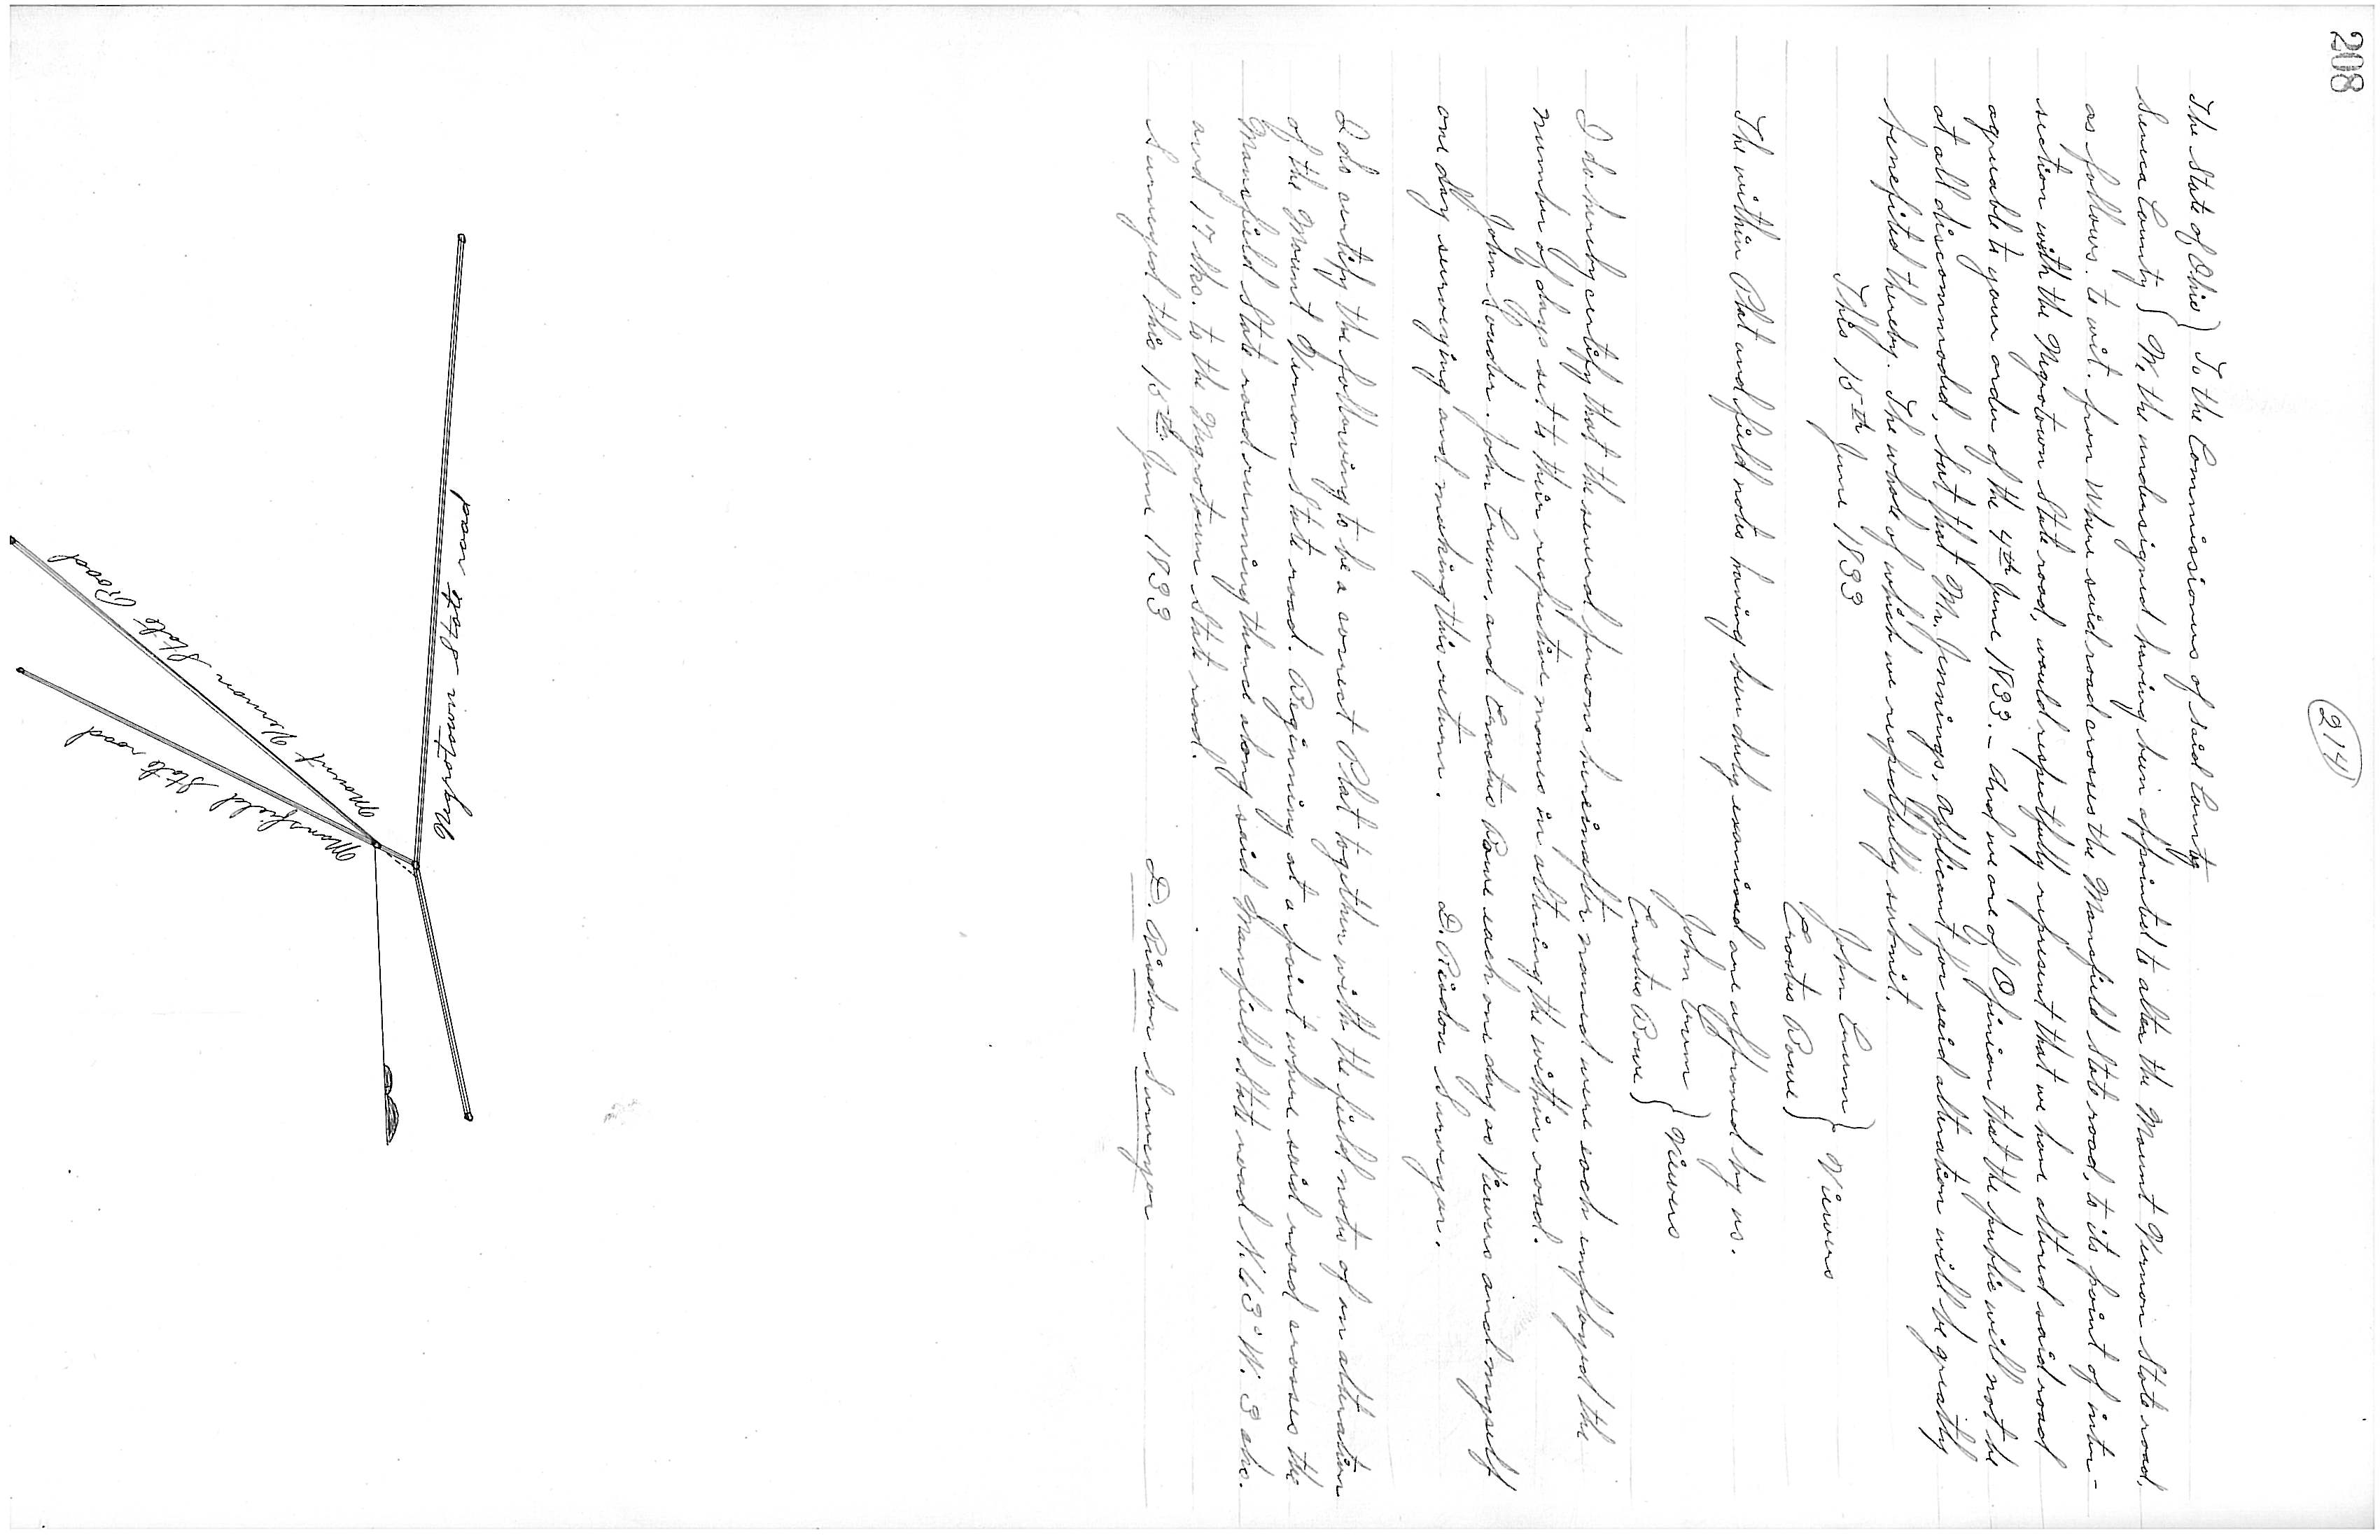 208
(214)
The State of Ohio } To the Commissioners of said County
Seneca County } We the undersigned having been appointed to alter the Mount Vernon State road,
as follows. to wit. from Where said road crosses the Mansfield State road, to its point of inter-
section with the Mgrotown State road, would respectfully represent that we have altered said road
agreeable to your order of the 4th June 1833. - And we are of Opinion that the public will not be
at all discommoded, but that Mr. Jennings, Applicant for said alteration will be greatly
benefited thereby. The whole of which we respectfully submit.
This 15th June 1833
John Crum }
Erastus Bowe } Viewers
The within Plat and field notes having been duly examined are approved by us.
John Crum }
Erastus Bowe } Viewers
I do hereby certify that the several persons hereinafter named were each employed the
number of days set to their respective names in altering the within road.
John Souder. John Crum, and Erastus Bowe each one day as Viewers and myself
one day surveying and making this return. D. Risdon Surveyor.
I do certify the following to be a correct Plat together with the field notes of an alteration
of the Mount Vernon State road. Beginning at a point where said road crosses the
Mansfield State road running thence along said Mansfield State road N. 63° W. 3 chs.
and 17 lks. to the Mgrotown State road.
Surveyed this 15th June 1833
D. Risdon Surveyor
Mgrotown State road
Mount Vernon State Road
Mansfield State road